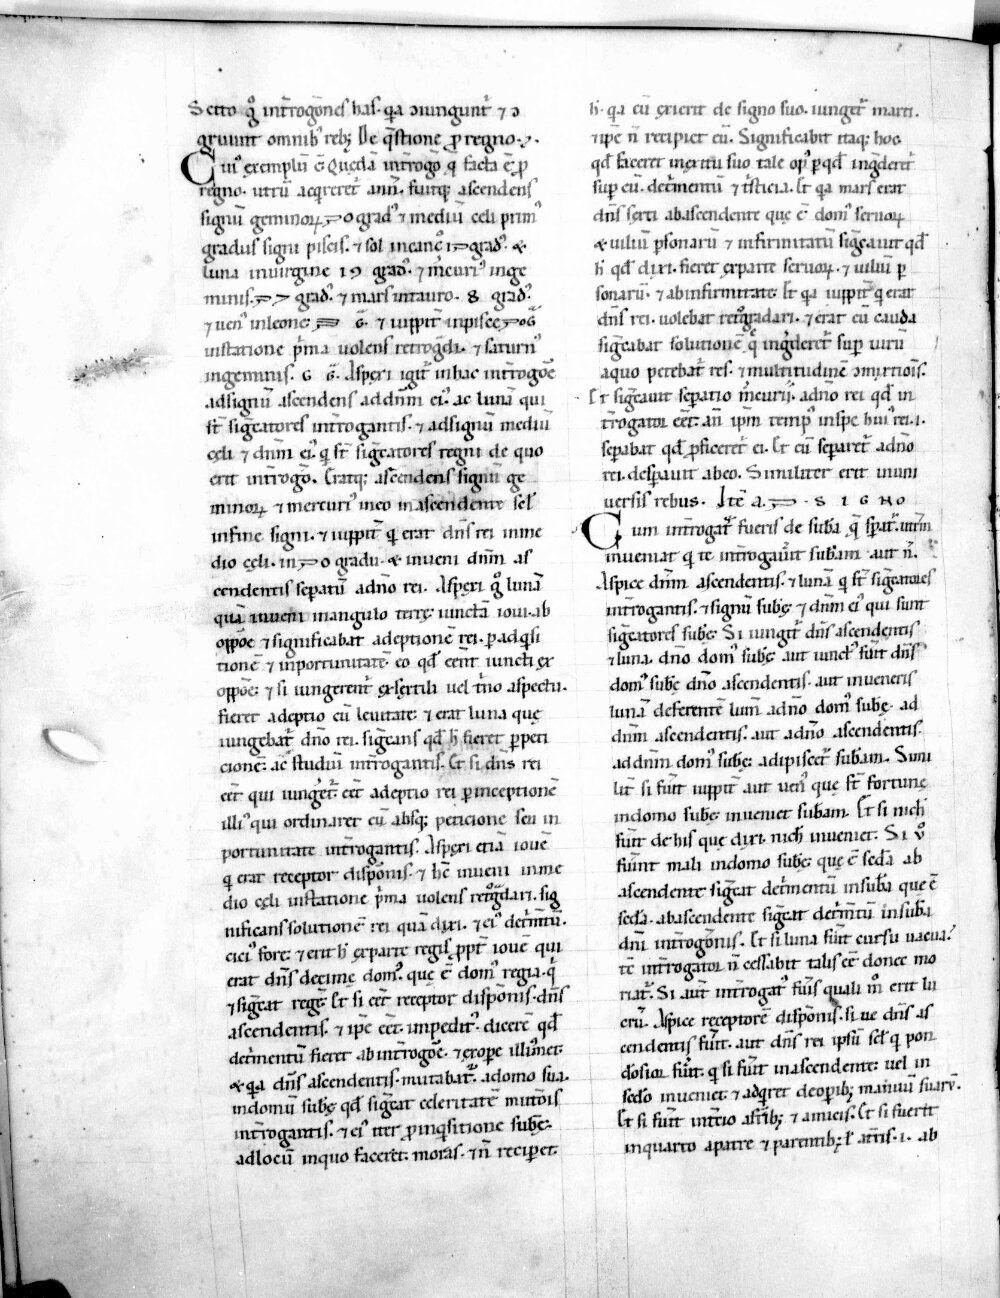 Scito g̊ int̄rogōnes has. q̄a ɔiungunt᷑ ⁊ ɔ
gruunt omnib᷒ reb; De q̄stione p̱ regno.
Cui᷒ exemplū ē. Quedā int̄rogo q̄ facta ē p̱
regno. utrū acq̄reret᷑ ann̄. fuitq; ascendens
signū geminoꝝ 20 grad᷒ ⁊ mediū celi prim᷒
gradus signi piscis. ⁊ sol in
luna inuirgine 19 grad᷒. ⁊ m̄curi᷒ inge
minis. 27 grad᷒. ⁊ mars intauro. 8 grad᷒.
⁊ uen᷒ inleone. G̅. ⁊ iuppit̄ inpisce 20 G̅
instatione p̄ma uolens retrog̃di. ⁊ saturn᷒
ingeminis. G G̅. Aspexi igit᷑ inhac int̄rogōe
adsignū ascendens addn̄m ei᷒. ac lunā qui
st̄ sig̃catores int̄rogantis. ⁊ adsignū mediū
cęli ⁊ dn̄m ei᷒. q̄ st̄ sig̃catores regni de quo
erit int̄rogo. Eratq; ascendens signū ge
minoꝝ ⁊ mercuri᷒ ineo inascendente sc̄l
infine signi. ⁊ iuppit̄ q̄ erat dn̄s rei inme
dio cęli. in 20 gradu. & inueni dn̄m as
cendentis sepatū adn̄o rei. Aspexi g̊ lunā
quā inueni inangulo terrę. iunctā ioui. ab
oppōe ⁊ significabat adeptionē rei. p̱ adq̄si
tionē ⁊ inportunitatē. eo qd̄ eēnt iuncti ex
oppōe. ⁊ si iungerent᷑ ex sextili uel t̄no aspectu.
fieret adeptio cū leuitate. ⁊ erat luna que
iungebat᷑ dn̄o rei. sig̃cans qd̄ h̄ fieret p̱peti
cionē. ac studiū int̄rogantis. Et si dn̄s rei
eēt qui iunget᷑. eēt adeptio rei p̱inceptionē
illi᷒ qui ordinaret eū absq; peticione seu in
portunitate int̄rogantis. Aspexi etiā iouē
q̄ erat receptor disponis. ⁊ hc̄ inueni inme
dio cęli instatione p̄ma uolens retog̃dari. sig
nificans solutionē rei quā dixi. ⁊ ei᷒ det̄m̄tū.
cici᷒ fore. ⁊ erit h̄ exparte regis p̱pt̄ iouē qui
erat dn̄s decime dom᷒. que ē dom᷒ regia. q̄
⁊ sig̃cat regē. Et si eēt receptor disponis. dn̄s
ascendentis. ⁊ ip̄e eēt. impedit᷒. dicerē qd̄
det̄mentū fieret ab int̄rogōe. ⁊ exope illi᷒
& q̄a dn̄s ascendentis. mutabat᷑. adomo sua.
indomū subę qd̄ sig̃cat celeritatē mutōis
int̄rogantis. ⁊ ei᷒ iter p̱inq̄sitione subę.
adlocū inquo faceret. moras. ⁊ n̄ recip̱et.
h̄. q̄a cū exierit de signo suo. iunget᷑ marti.
⁊ ip̄e n̄ recipiet eū. Significabit itaq; hoc
qd̄ faceret in exitu suo tale op᷒ p̱qd̄ ing̃deret᷑
sup eū. det̄mentū ⁊ t̄sticia. Et q̄a mars erat
dn̄s sexti abascendente que ē dom᷒ seruoꝝ
& uiliū p̱sonarū ⁊ infirmitatū sig̃cauit qd̄
h̄ qd̄ dixi. fieret exparte seruoꝝ. ⁊ uiliū p̱
sonarū. ⁊ abinfirmitate. Et q̄a iuppit̄ q̄ erat
dn̄s rei. uolebat retog̃dari. ⁊ erat cū cauda
sig̃cabat solutionē q̄ ing̃deret᷑ sup uirū
aquo petebat᷑ res. ⁊ multitudinē ɔmixtiois.
Et sig̃cauit sepatio m̄curii. adn̄o rei qd̄ in
t̄rogator eēt. an̄ ip̄m temp᷒ inspe hui᷒ rei. ⁊
sepabat qd̄ p̱ficeret᷑ ei. Et cū separet᷑ adn̄o
rei. desp̱auit abeo. Similiter erit inuni
uersis rebus. Itē a. 2 . SIGNO
Cum int̄rogat᷒ fueris de suba q̄ spat᷑. utrū
inueniat q̄ te int̄rogauit subam. aut n̄.
Aspice dn̄m ascendentis. ⁊ lunā q̄ st̄ sig̃catores
int̄rogantis. ⁊ signū subę ⁊ dn̄m ei᷒ qui sunt
sig̃catores subę. Si iungit᷑ dn̄s ascendentis
⁊ luna. dn̄o dom᷒ subę. aut iunct᷒ fuit dn̄s
dom᷒ subę dn̄o ascendentis. aut inueneris
lunā deferentē lum̄ adn̄o dom᷒ subę. ad
dn̄m ascendentis. aut adn̄o ascendentis.
addn̄m dom᷒ subę. adipiscet᷑ subam. Simi
lit̄ si fuit̄ iuppit̄ aut uen᷒ que st̄ fortunę
indomo subę inueniet subam. Et si nich̄
fuit̄ de his que dixi. nich̄ inueniet. Si v̊
fuit̄nt mali indomo subę. que ē sedā ab
ascendente sig̃cat det̄mentū insuba que ē
sedā. abascendente sig̃cat det̄m̄tū insuba
dn̄i int̄rogōnis. Et si luna fuit̄ cursu uacua᷒
tē int̄rogator n̄ cessabit talis eē donec mo
riat᷑. Si aut̄ int̄rogat᷒ fuis quali m̊ erit lu
erū. Aspice receptorē disponis. siue dn̄s as
cendentis fuit̄. aut dn̄s rei ipsū sc̄l q̄ pon
dosior fuit̄. q̄ si fuit̄ inascendente. uel in
sedo inueniet. ⁊ adq̄ret deopib; manuū suarū.
Et si fuit̄ int̄cio afr̄ib; ⁊ amicis. Et si fuerit
inquarto apatre ⁊ parentib; l̄ at̄ris. i. ab